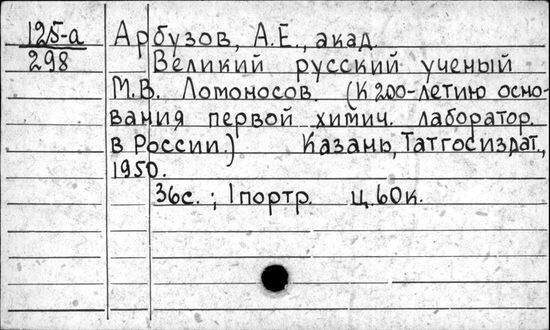 125-а
298
Арбузов, А.Е., акад.
Великий русский ученый
М.В. Ломоносов. (К 200-летию осно-
вания первой химич. лаборатор.
в России.) Казань, Татгосиздат.,
1950.
36с. ; 1 портр. ц. 60к.